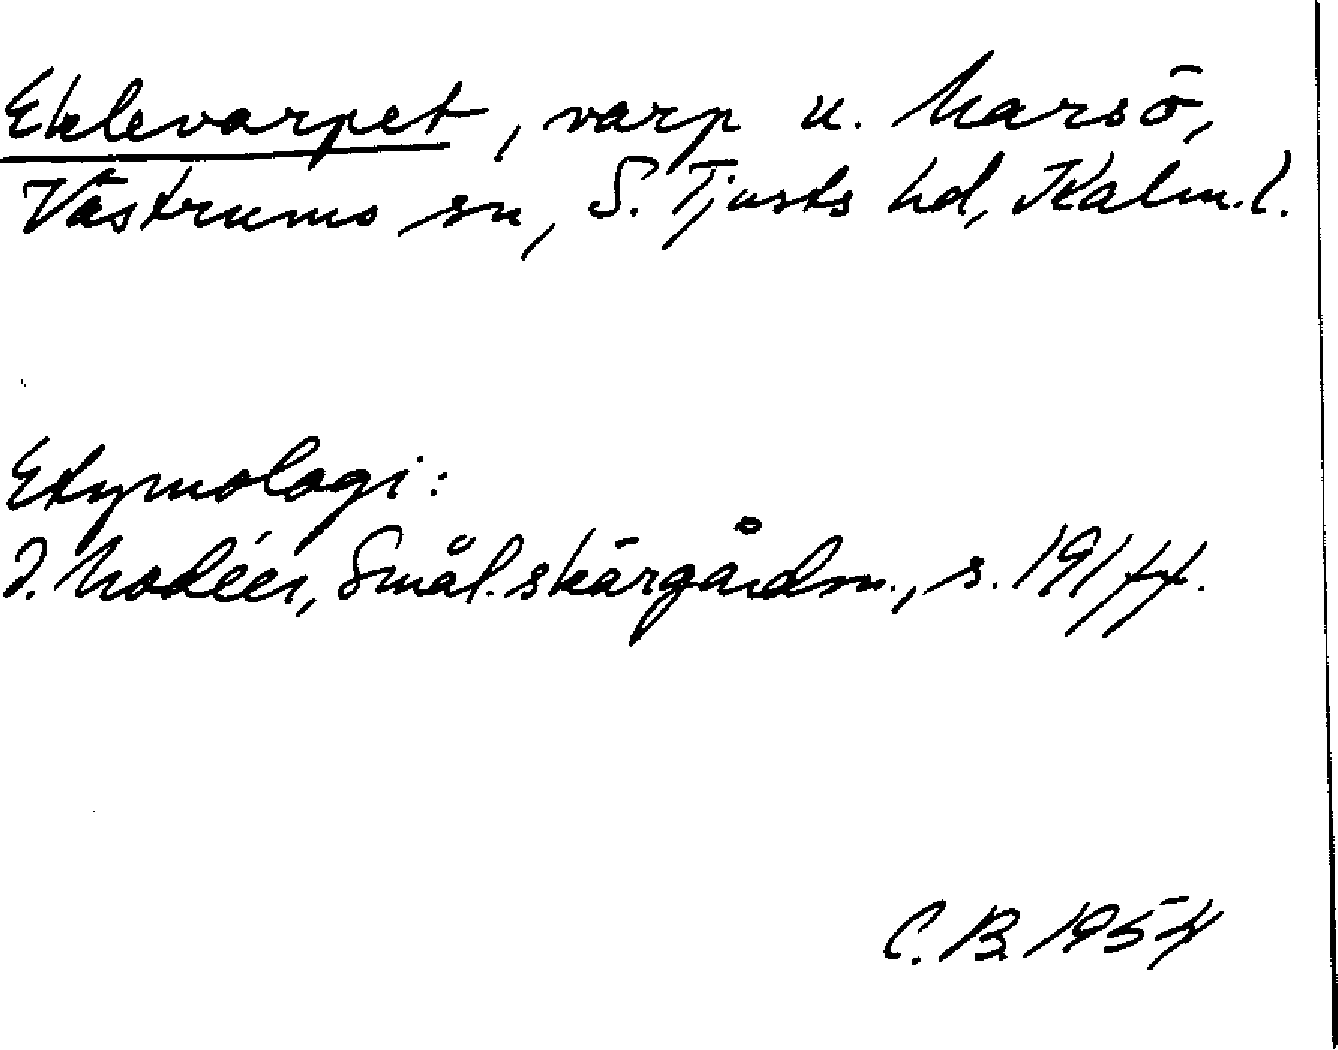 Eklevarpet, varp u. Marsö,
Västrums sn, S. Tjusts hd, Kalm. l.
Etymologi:
I. Modéer, Smål. skärgårdsn., s. 191 ff.
C. B. 1954